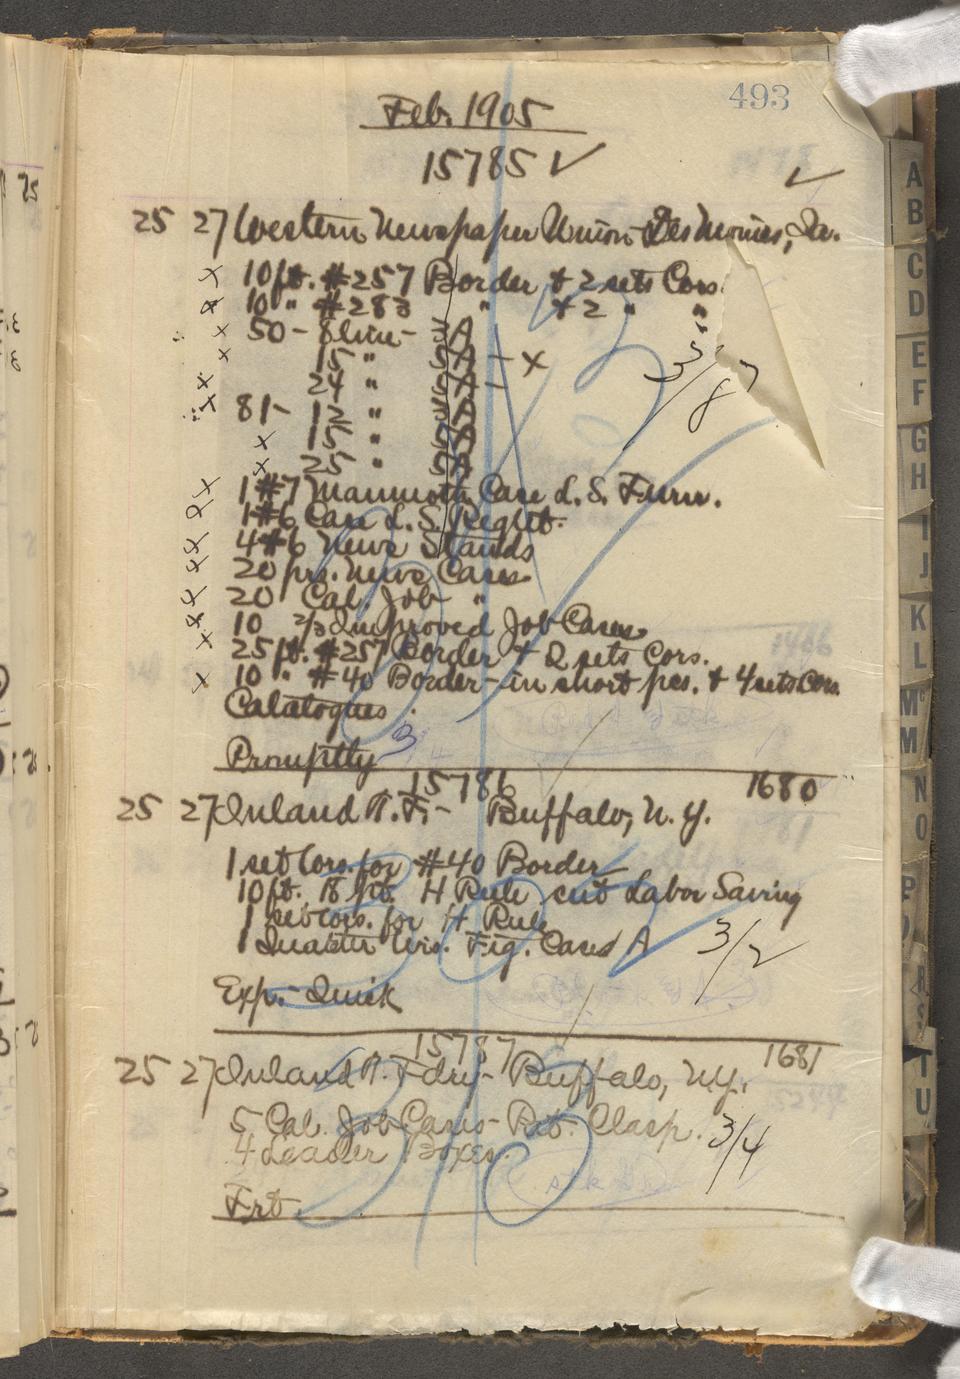 493
Feb. 1905
15785 ✓
25 27 Western Newspaper Union - Des Moines, Ia.
10 ft. #257 Border & 2 sets Cors.
10 " #283 " & 2 " "
50 - 8 line - 3A
15 " 5A - x
24 " 5A -
3/8
81 - 12 " 3A
15 " 5A
25 " 5A
1 #7 Mammoth Case L. S. Furn.
1 #6 Case L. S. Reglet.
4 #6 News Stands
20 prs. News Cases
20 Cal. Job "
10 2/3 Improved Job Cases
25 ft. #257 Border & 2 sets Cors.
10 " #40 Border - in short pcs. & 4 sets Cors.
Catalogues.
Promptly
15786 1680
25 27 Inland T. F. - Buffalo, N.Y.
1 set Cors. for #40 Border
10 ft. 18 pt. H Rule cut Labor Saving
1 set Cors. for H Rule
1 Quarter Wis. Fig. Cases A
3/2
Exp. - Quick
15787 1681
25 27 Inland T. Fdry - Buffalo, N.Y.
5 Cal. Job Cases - Pat. Clasp.
3/4
4 Leader Boxes.
Frt.
A
B
C
D
E
F
G
H
I
J
K
L
Mc
M
N
O
P
R
S
T
U